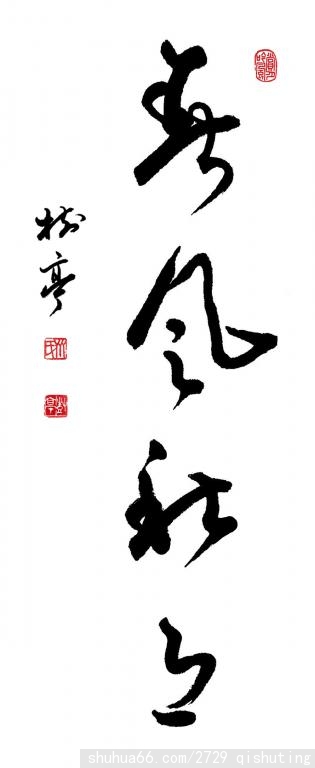 春风秋月
树亭
shuhua66.com/2729 qishuting